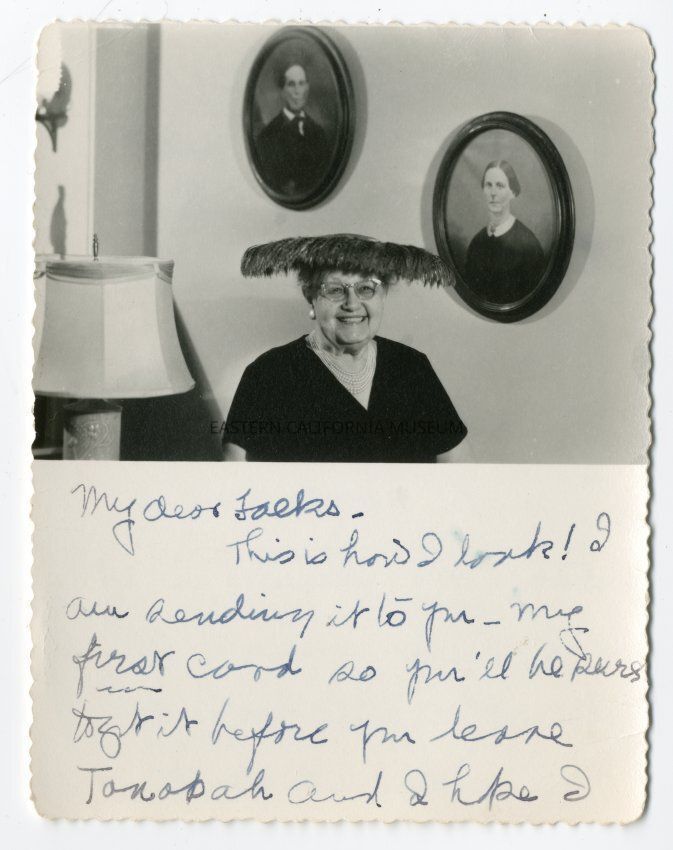 EASTERN CALIFORNIA MUSEUM
My dear Folks -
This is how I look! I
am sending it to you - my
first card so you'll be sure
to get it before you leave
Tonopah and I hope I